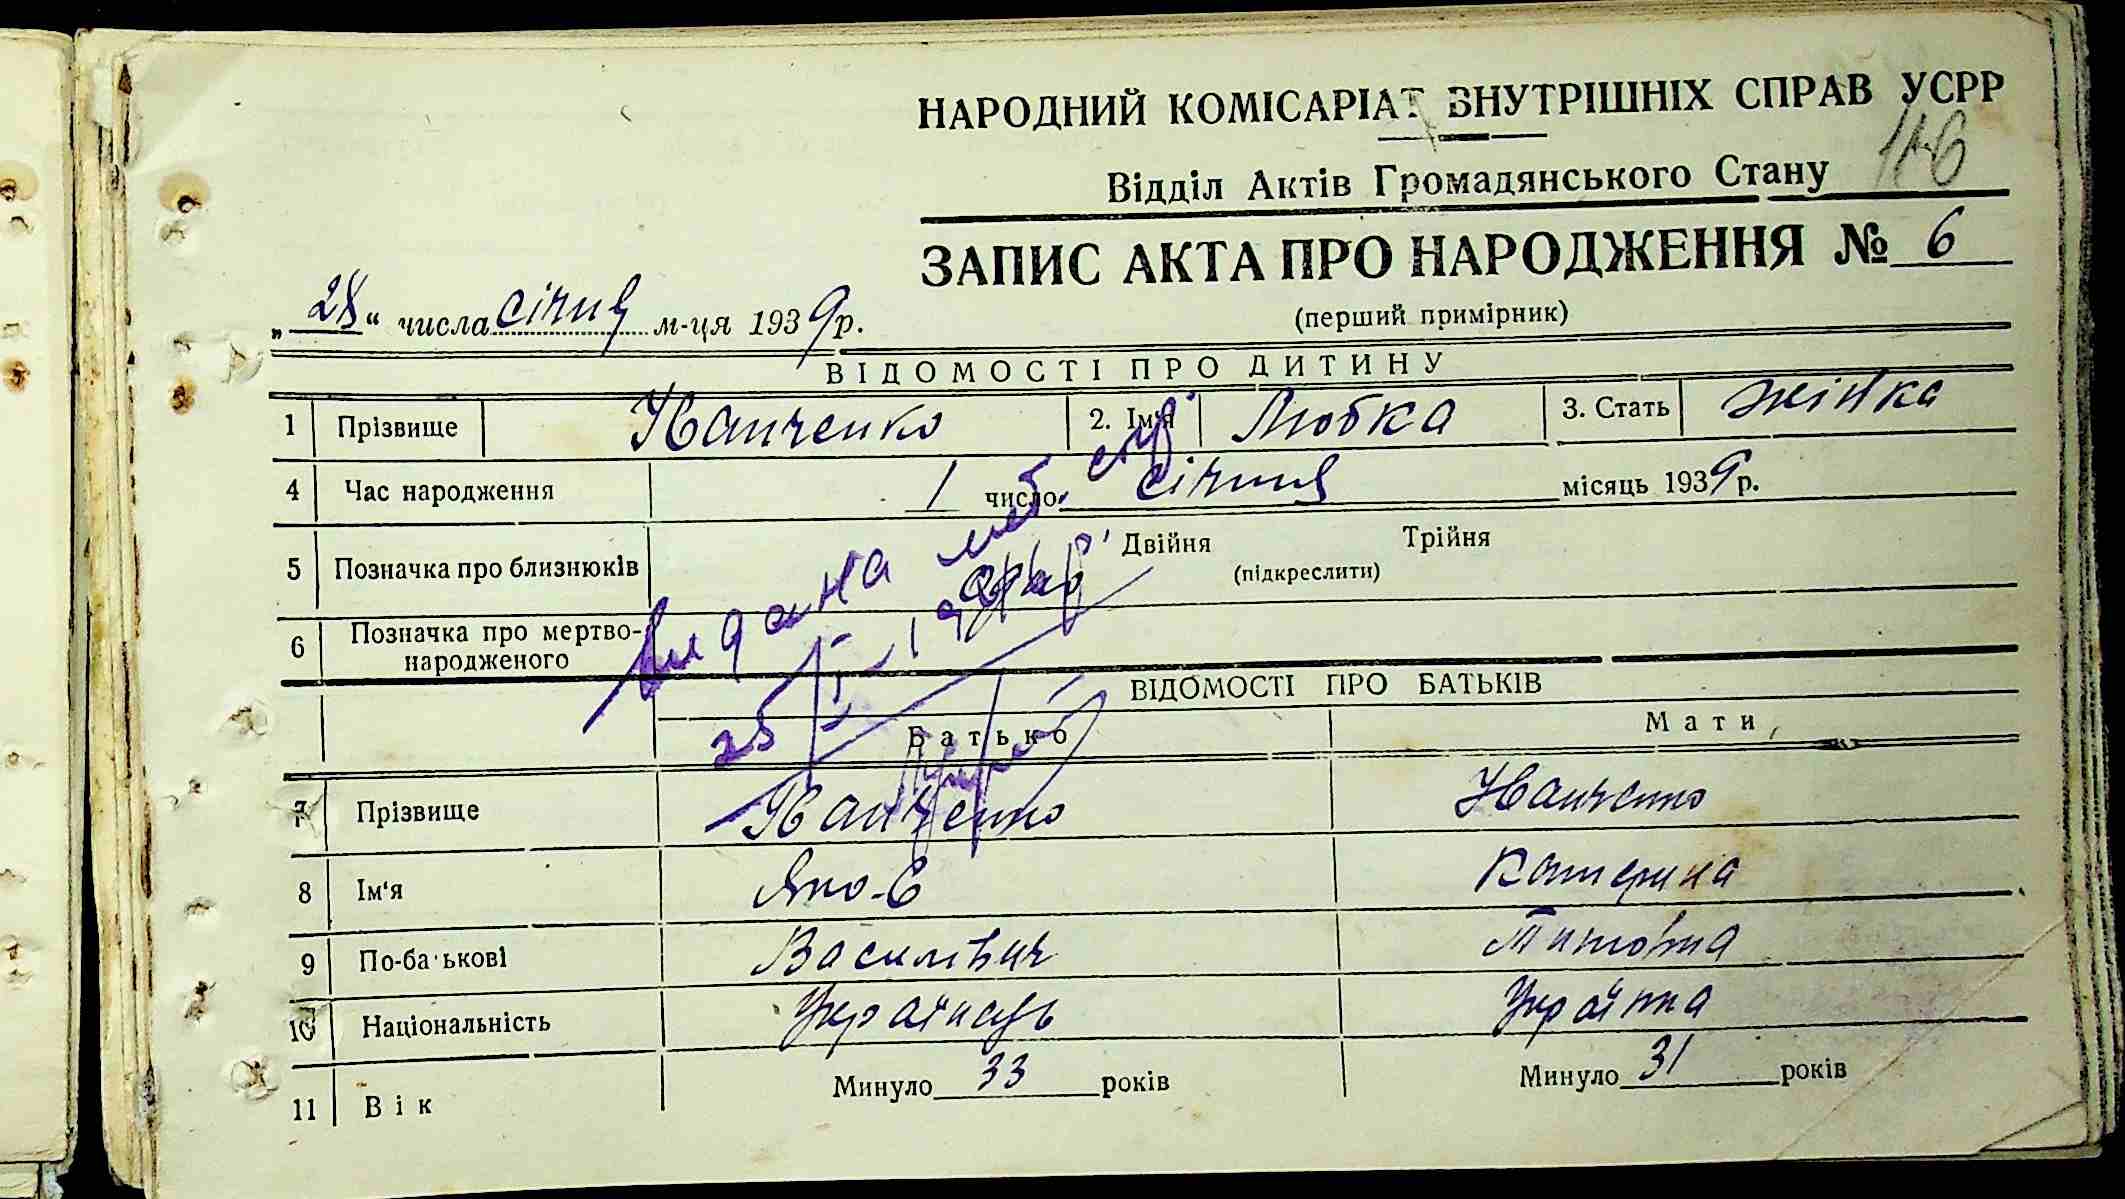 НАРОДНИЙ КОМІСАРІАТ ВНУТРІШНІХ СПРАВ УСРР
Відділ Актів Громадянського Стану
ЗАПИС АКТА ПРО НАРОДЖЕННЯ № 6
„28“ числа січня м-ця 1939р.
(перший примірник)
ВІДОМОСТІ ПРО ДИТИНУ
1 Прізвище Іванченко 2. Ім'я Любка 3. Стать жінка
4 Час народження 1 число січня місяць 1939р.
5 Позначка про близнюків Двійня Трійня
(підкреслити)
6 Позначка про мертво-
народженого
видана
ВІДОМОСТІ ПРО БАТЬКІВ
Батько Мати
7 Прізвище Іванченко Іванченко
8 Ім'я Катерина
9 По-батькові Василівич Титовна
10 Національність Українець Українка
11 Вік Минуло 33 років Минуло 31 років